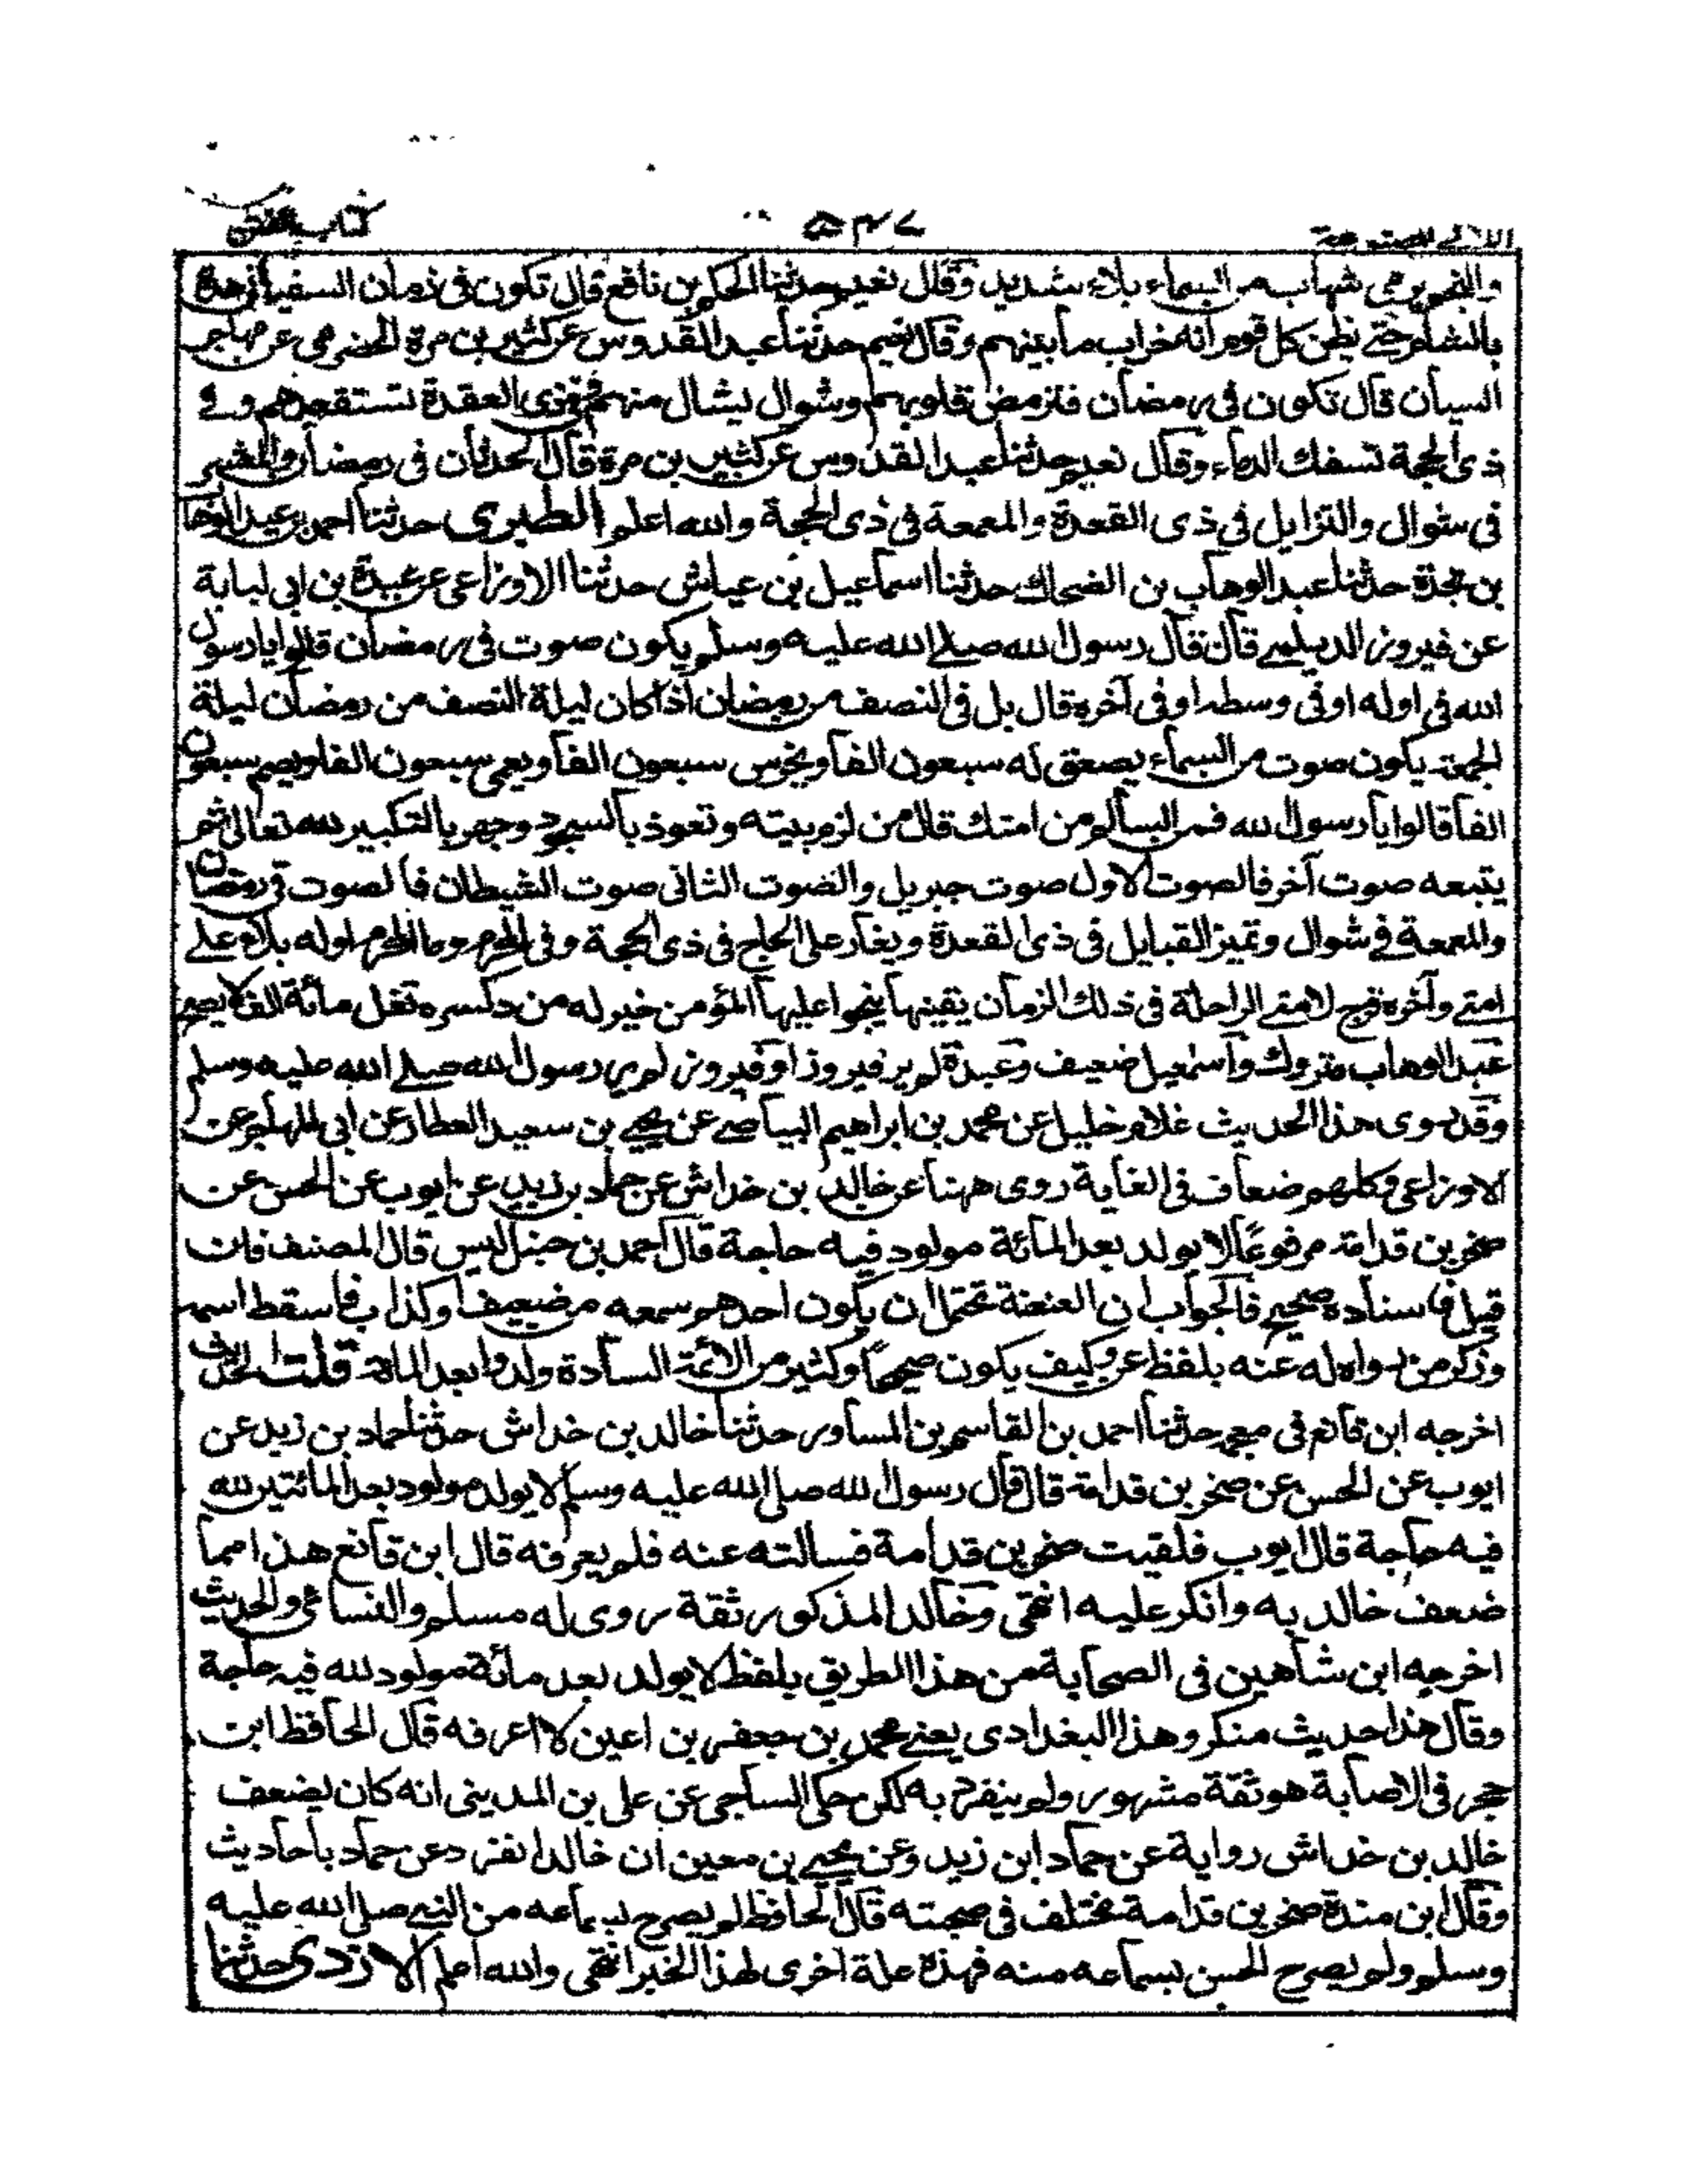 اللآلئ المصنوعة ٥٤٧ كتاب الفتن
والنجم يرمى شهاب من السماء بلاء شديد وقال نعيم حدثنا الحكم بن نافع قال تكون فى زمان السفيانى هدة
بالشام حتى يظن كل قوم انه خراب ما بينهم وقال نعيم حدثنا عبد القدوس عن كثير بن مرة الحضرمى عن مهاجر
السبأن قال تكون فى رمضان فترمض قلوبهم وشوال يشال منهم وفى ذى العقدة تستقعدهم وفى
ذى الحجة تسفك الدماء وقال نعيم حدثنا عبد القدوس عن كثير بن مرة قال الحدثان فى رمضان والهشير
فى شوال والتزايل فى ذى القعدة والمعمعة فى ذى الحجة والله اعلم الطبرى حدثنا احمد بن عبد الوهاب
بن نجدة حدثنا عبد الوهاب بن الضحاك حدثنا اسماعيل بن عياش حدثنا الاوزاعى عن عبدة بن ابى لبابة
عن فيروز الديلمى قال قال رسول الله صلى الله عليه وسلم يكون صوت فى رمضان قالوا يا رسول
الله فى اوله او فى وسطه او فى آخره قال بل فى النصف من رمضان اذا كان ليلة النصف من رمضان ليلة
الجمعة يكون صوت من السماء يصعق له سبعون الفا ويخرس سبعون الفا ويعمى سبعون الفا ويصم سبعون
الفا قالوا يا رسول الله فمن السالم من امتك قال من لزم بيته وتعوذ بالسجود وجهر بالتكبير لله تعالى ثم
يتبعه صوت آخر فالصوت الاول صوت جبريل والصوت الثانى صوت الشيطان فالصوت فى رمضان
والمعمعة فى شوال وتميز القبايل فى ذى القعدة ويغار على الحاج فى ذى الحجة وفى المحرم وما المحرم اوله بلاء على
امتى وآخره فرج لامتى الراحلة فى ذلك الزمان يقينها ينجوا عليها المؤمن خير له من دسكره تغل مائة الف لا يصح
عبد الوهاب متروك واسمعيل ضعيف وعبدة لم ير فيروز او فيروز لم ير رسول الله صلى الله عليه وسلم
وقد روى هذا الحديث غلام خليل عن محمد بن ابراهيم البياضى عن يحيى بن سعيد العطار عن ابى المهاجر عن
الاوزاعى وكلهم ضعاف فى الغاية روى ههنا عن خالد بن خداش عن حماد بن زيد عن ايوب عن الحسن عن
صخر بن قدامة مرفوعا لا يولد بعد المائة مولود فيه حاجة قال احمد بن حنبل ليس قال المصنف فان
قيل فاسناده صحيح فالجواب ان العنعنة تحتمل ان يكون احدهم سمعه من ضعيف او كذاب فاسقط اسمه
وذكر من رواه له عنه بلفظ عن وكيف يكون صحيحا وكثير من الائمة السادة ولدوا بعد المائة قلت الحديث
اخرجه ابن قانع فى معجمه حدثنا احمد بن القاسم بن المساور حدثنا خالد بن خداش حدثنا حماد بن زيد عن
ايوب عن الحسن عن صخر بن قدامة قال قال رسول الله صلى الله عليه وسلم لا يولد مولود بعد المائتين لله
فيه حاجة قال ايوب فلقيت صخر بن قدامة فسالته عنه فلم يعرفه قال ابن قانع هذا مما
ضعف خالد به وانكر عليه انتهى وخالد المذكور ثقة روى له مسلم والنسائى والحديث
اخرجه ابن شاهين فى الصحابة من هذا الطريق بلفظ لا يولد بعد مائة مولود لله فيه حاجة
وقال هذا حديث منكر وهذا البغدادى يعنى محمد بن جعفر بن اعين لا اعرفه قال الحافظ ابن
حجر فى الاصابة هو ثقة مشهور ولم ينفرد به لكن حكى الساجى عن على بن المدينى انه كان يضعف
خالد بن خداش رواية عن حماد ابن زيد وعن يحيى بن معين ان خالدا انفرد عن حماد باحاديث
وقال ابن مندة صخر بن قدامة مختلف فى صحبته قال الحافظ لم يصرح بسماعه من النبى صلى الله عليه
وسلم ولم يصرح الحسن بسماعه منه فهذه علة اخرى لهذا الخبر انتهى والله اعلم الازدى حدثنا